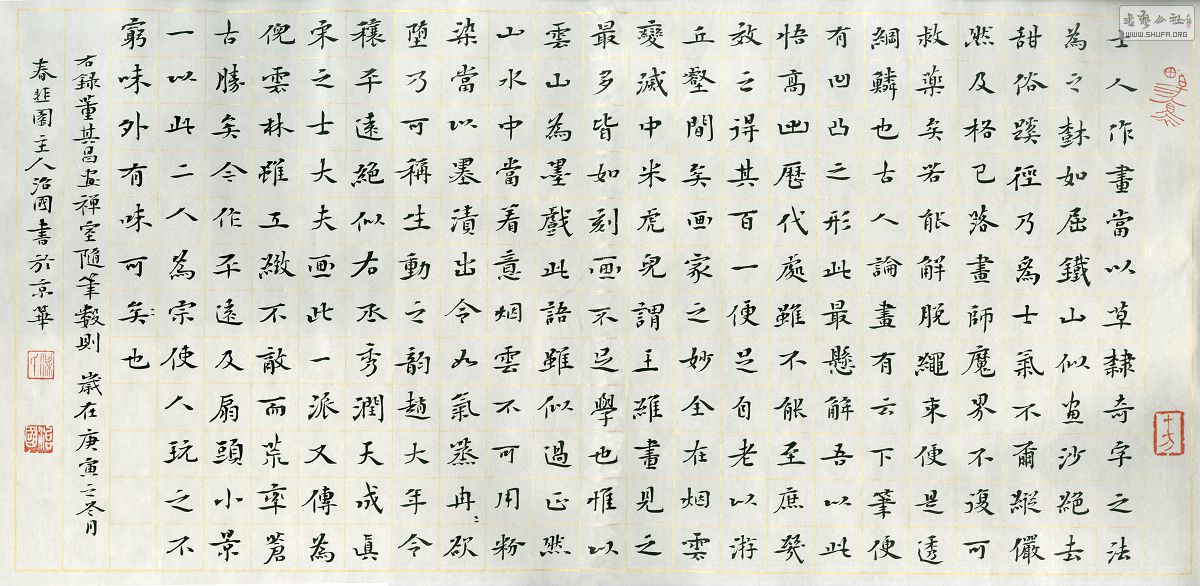 士人作畫當以草隸奇字之法
為之樹如屈鐵山似畫沙絕去
甜俗蹊徑乃為士氣不爾縱儼
然及格已落畫師魔界不復可
救藥矣若能解脫繩束便是透
綱鱗也古人論畫有云下筆便
有凹凸之形此最懸解吾以此
悟高出歷代處雖不能至庶幾
效之得其百一便足自老以游
丘壑間矣画家之妙全在烟雲
變滅中米虎兒謂王維畫見之
最多皆如刻画不足學也惟以
雲山為墨戲此語雖似過正然
山水中當着意烟雲不可用粉
染當以墨漬出令如氣蒸冉〻欲
墮乃可稱生動之韵趙大年令
穰平遠絕似右丞秀潤天成真
宋之士大夫画此一派又傳為
倪雲林雖工緻不敵而荒率蒼
古勝矣今作平遠及扇頭小景
一以此二人為宗使人玩之不
窮味外有味可矣也
右録董其昌画禪室隨筆數則 歲在庚寅之冬月
春韭園主人治國書於京華
治國
十方
书艺公社
WWW.SHUFA.ORG